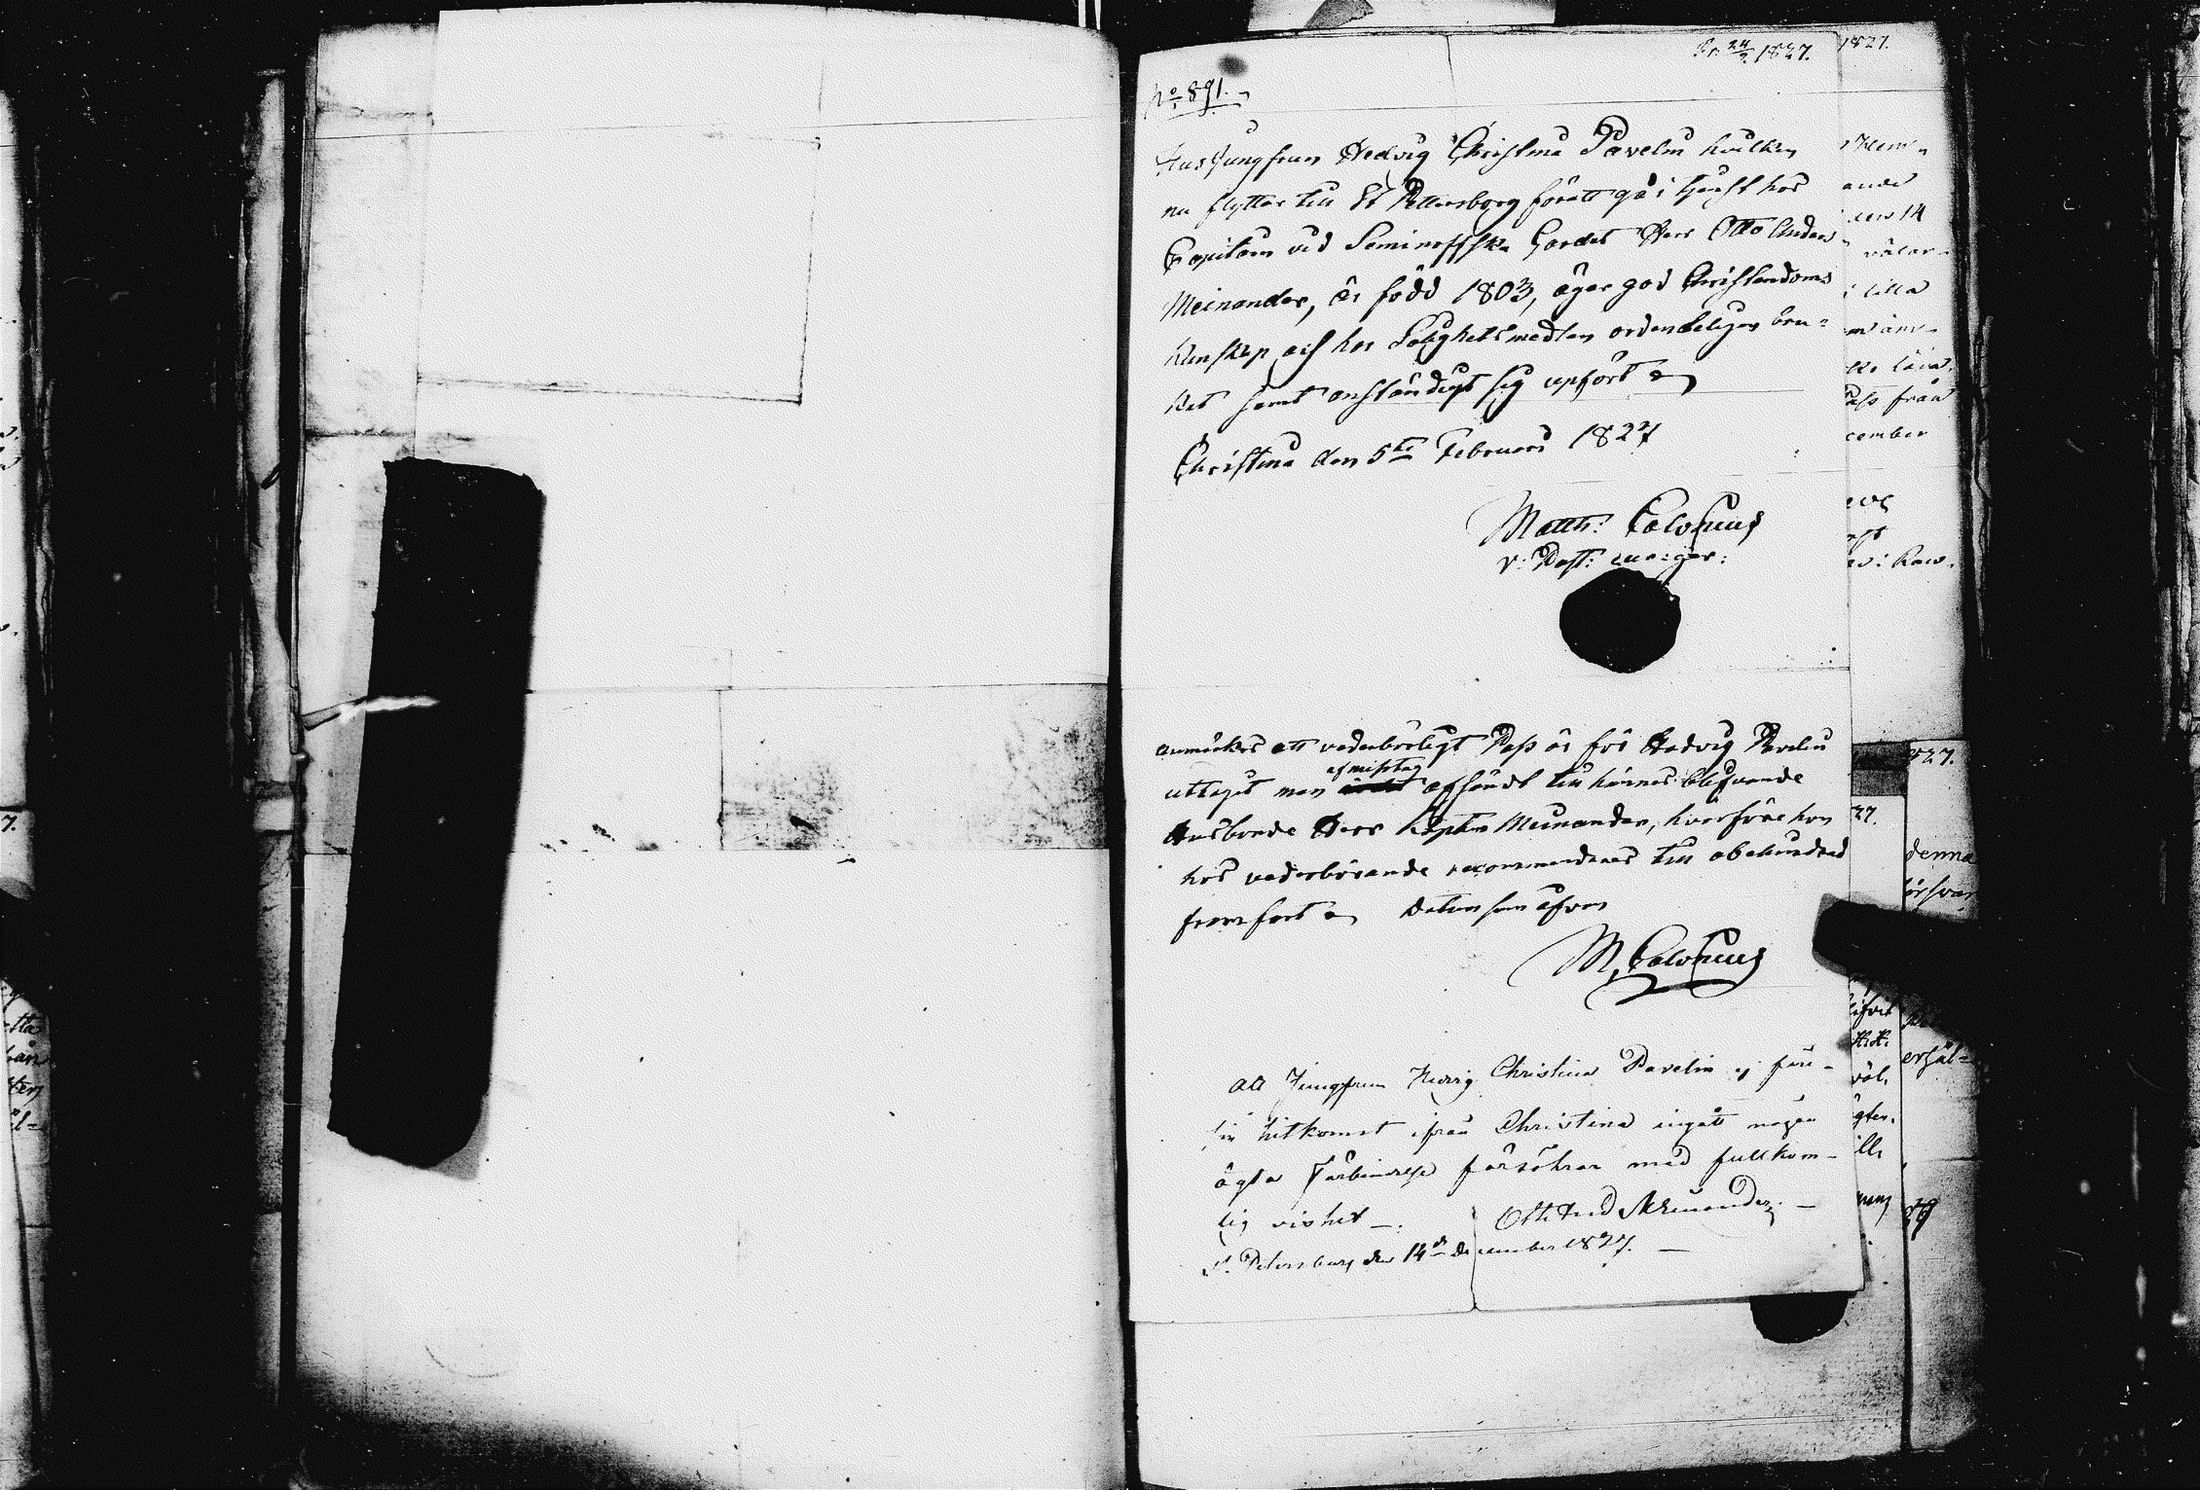 Pr. 24/9 1827.
No 891.
Husjungfrun Hedvig Christina Pavelin hvilken
nu flyttar till St Pettersborg föratt gå i tjenst hos
Capitain vid Seminoffska Gardet Herr Otto
Meinander, är född 1803, äger god Christendoms
kunskap och har Salighetsmedlen ordenteligen bru=
kat samt anständigt sig upfört
Christina den 5te Februari 1827
Matth: Calonius
v: Past:
anmärkes att vederbörligt Pass är för Hedvig Pavelin
uttagit men af misstag afsändt till hännes blifvande
Husbonde Herr Capten Meinander, hvarföre hon
hos vederbörande recommenderas till obehindrad
framfart Datum som ofvan
M. Calonius
Att Jungfrun Hedvig Christina Pavelin ej före-
sin hitkomst ifrån Christina ingått någon
ägta Förbindelse försöhrar med fullkom-
lig vishet —.
Meinander —
St. Petersburg den 14de December 1827. —
1827.
ande
den 14
lilla
Pass från
cember
827.
27.
denna